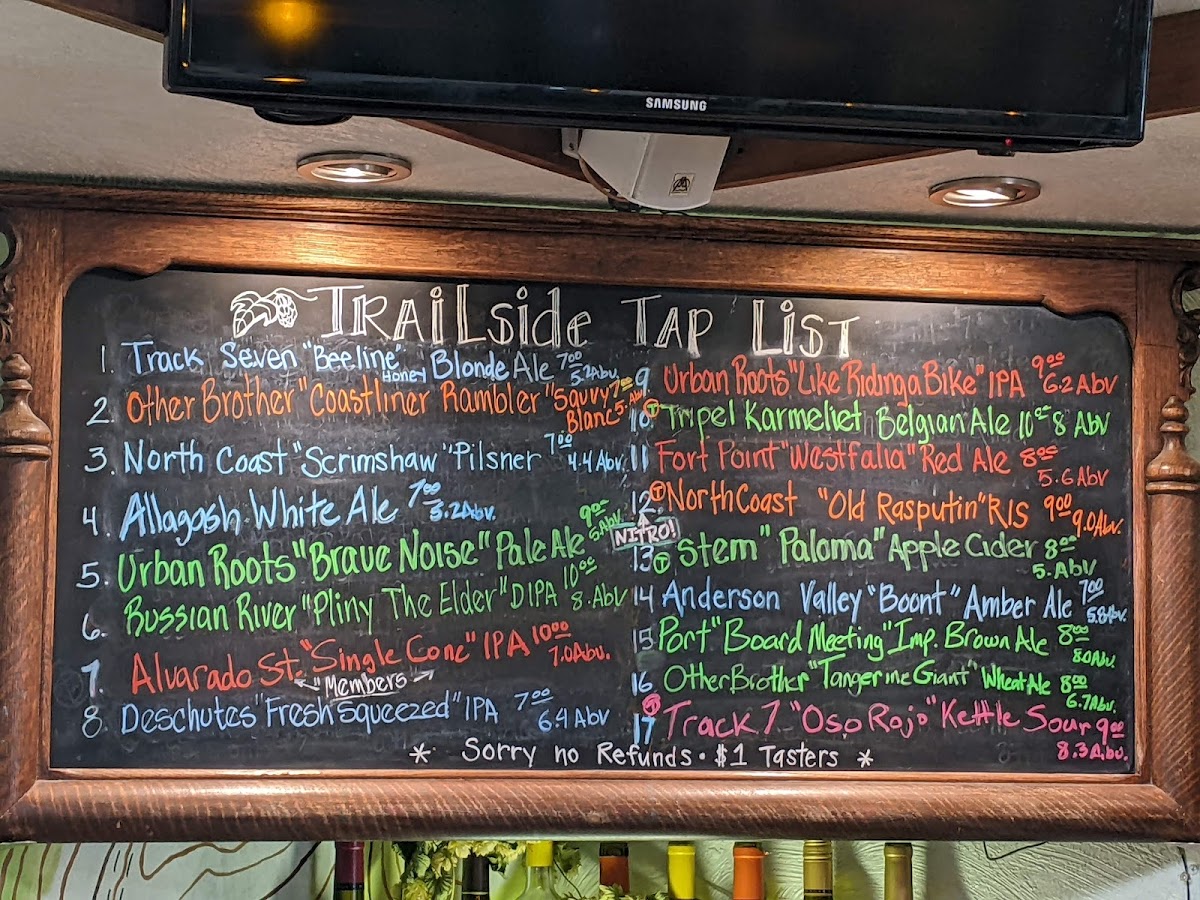 SAMSUNG
TRAILside TAP LIST
1. Track Seven "Beeline" Honey Blonde Ale 7.00 5.2 Abv.
2. Other Brother "Coastliner Rambler "Savvy Blanc 7.00 5. Abv
3. North Coast "Scrimshaw" Pilsner 7.00 4.4 Abv.
4 Allagash White Ale 7.00 5.2 Abv.
5. Urban Roots "Brave Noise" Pale Ale 9.00 5 Abv
6. Russian River "Pliny The Elder" DIPA 10.00 8. Abv
7. Alvarado St. "Single Cone" IPA 10.00 7.0 Abv.
Members
8. Deschutes "Fresh Squeezed" IPA 7.00 6.4 Abv
9 Urban Roots "Like Riding a Bike" IPA 9.00 6.2 ABV
10 T Tripel Karmeliet Belgian Ale 10.00 8 ABV
11 Fort Point "Westfalia" Red Ale 8.00 5.6 ABV
12. T North Coast "Old Rasputin" RIS 9.00 9.0 Abv.
NITRO!
13 T Stem "Paloma" Apple Cider 8.00 5. ABV
14 Anderson Valley "Boont" Amber Ale 7.00 5.8 Abv.
15 Port "Board Meeting" Imp. Brown Ale 8.00 8.0 Abv.
16 Other Brother "Tangerine Giant" Wheat Ale 8.00 6.7 Abv.
17 T Track 7 "Oso Rojo" Kettle Sour 9.00 8.3 Abv.
* Sorry no Refunds · $1 Tasters *